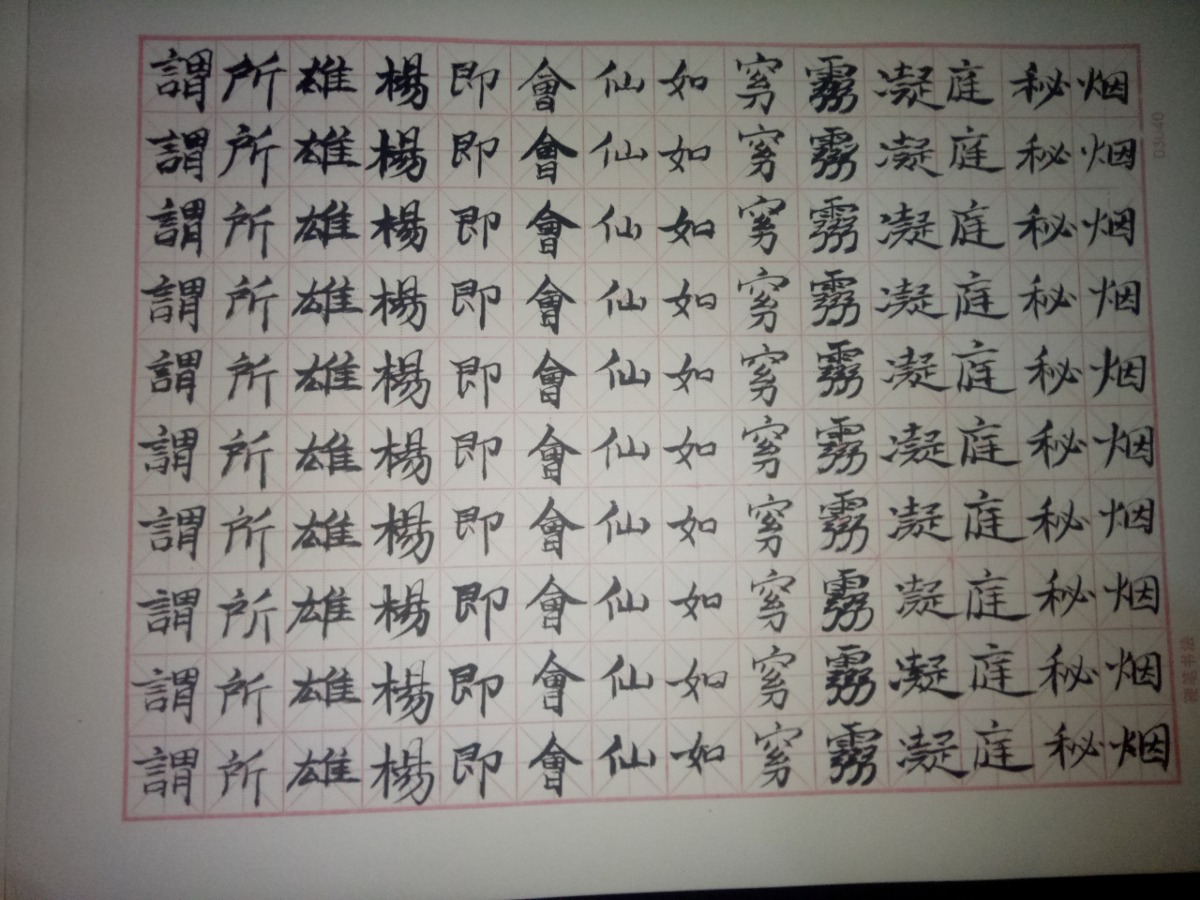 烟烟烟烟烟烟烟烟烟烟
秘秘秘秘秘秘秘秘秘秘
庭庭庭庭庭庭庭庭庭庭
凝凝凝凝凝凝凝凝凝凝
霧霧霧霧霧霧霧霧霧霧
窈窈窈窈窈窈窈窈窈窈
如如如如如如如如如如
仙仙仙仙仙仙仙仙仙仙
會會會會會會會會會會
即即即即即即即即即即
楊楊楊楊楊楊楊楊楊楊
雄雄雄雄雄雄雄雄雄雄
所所所所所所所所所所
謂謂謂謂謂謂謂謂謂謂